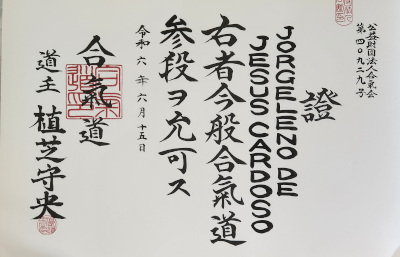 公益財団法人合氣会
第四〇九二九号
證
JORGELENO DE
JESUS CARDOSO
右者今般合氣道
参段ヲ允可ス
令和六年六月十五日
合氣道
道主 植芝守央